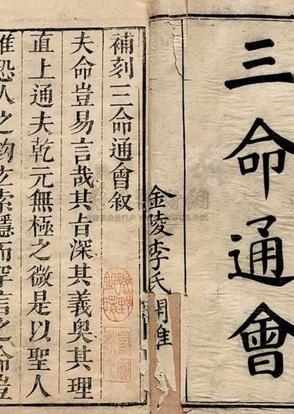 三命通會
金陵李氏開雕
補刻三命通會叙
夫命豈易言哉其㫖深其義奥其理
直上通夫乾元無極之微是以聖人
惟恐人之鈎玄索隱而罕言之命豈